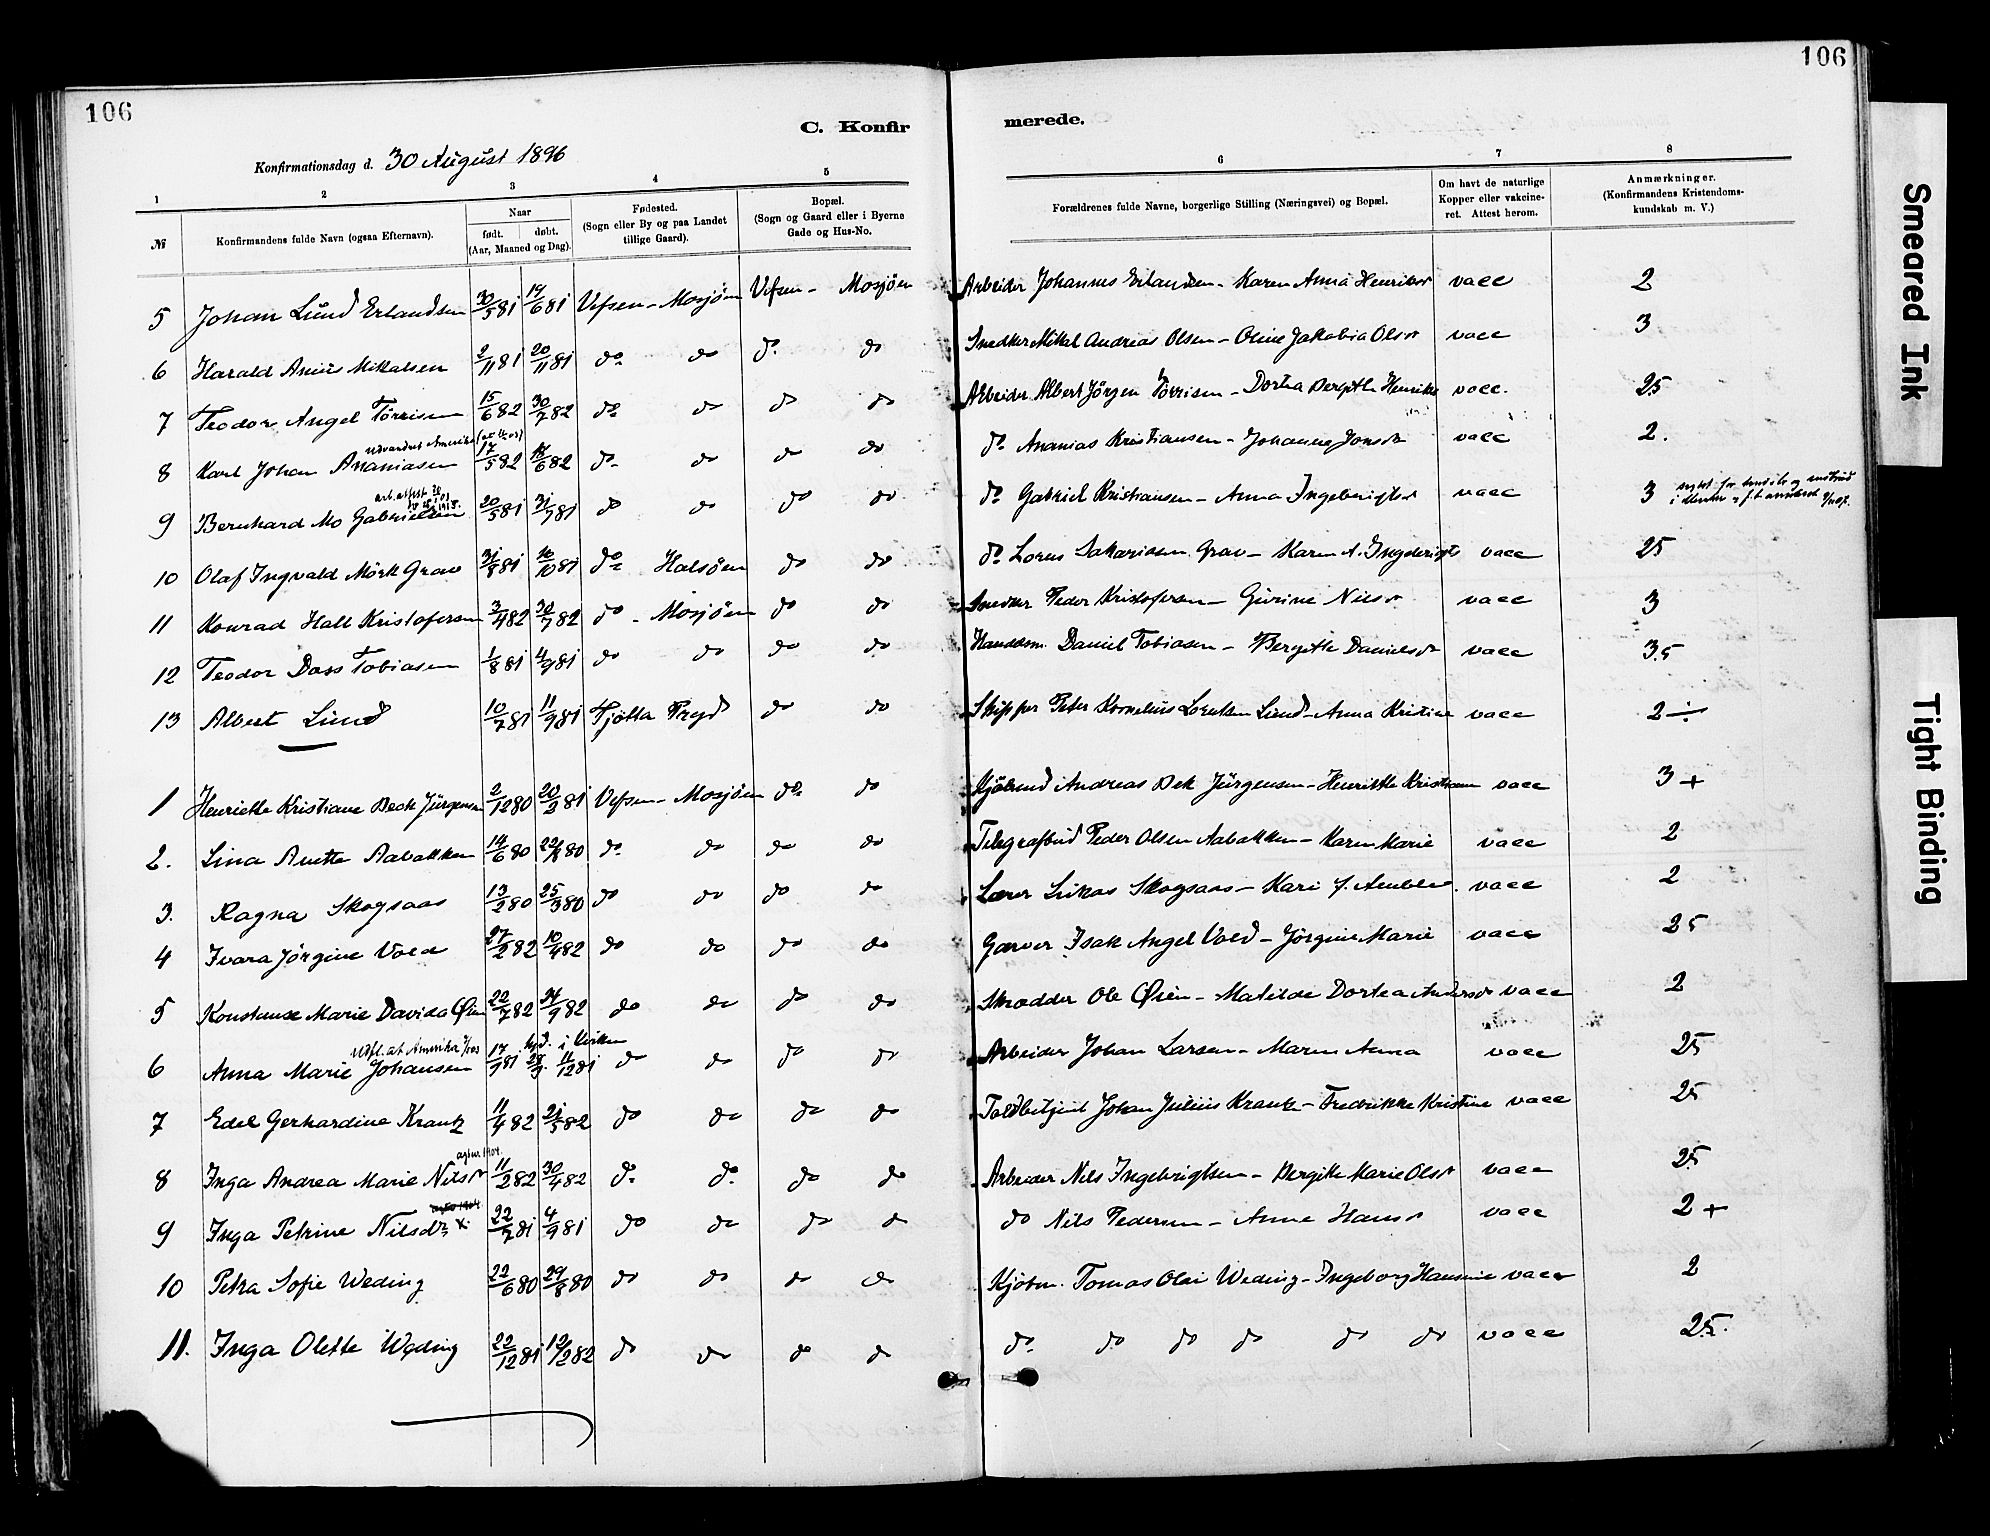 106
106
C. Konfir
merede.
Konfirmationsdag d. 30 August 1896
1 2 3 4 5 6 7 8
№
Konfirmandens fulde Navn (ogsaa Efternavn).
Naar
født. døbt.
(Aar, Maaned og Dag).
Fødested.
(Sogn eller By og paa Landet
tillige Gaard).
Bopæl.
(Sogn og Gaard eller i Byerne
Gade og Hus-No.
Forældrenes fulde Navne, borgerlige Stilling (Næringsvei) og Bopæl.
Om havt de naturlige
Kopper eller vakcine-
ret. Attest herom.
Anmærkninger.
(Konfirmandens Kristendoms-
kundskab m. V.)
5 Johan Lund Erlandsen 30/5 81 19/6 81 Vefsen - Mosjöen Vefsen - Mosjöen Arbeider Johannes Erlandsen - Karen Anna Henriksdr vacc 2
6 Harald Anius Mikalsen 2/11 81 20/11 81 do do do do Snedker Mikal Andreas Olsen - Oline Jakobia Olsdr vacc 3
7 Teodor Angel Törrisen 15/6 82 30/7 82 do do do do Arbeider Albert Jörgen Törrisen - Dortea Bergitte Henriks vacc. 2.5
udvandret Amerika
8 Karl Johan Ananiasen 17/5 82 18/6 82 do do do do do Ananias Kristiansen - Johanne Jonsdr vacc 2.
9 Bernhard Mo Gabrielsen 20/5 81 31/7 81 do do do do do Gabriel Kristiansen - Anna Ingebrigtsdr vacc 3
10 Olaf Ingvald Mörk Grav 31/8 81 16/10 81 do Halsöen do do do Lorns Sakariasen Grav - Karen A. Ingebrigts vacc 25
11 Konrad Hall Kristofersen 3/4 82 30/7 82 do - Mosjöen do do Snedker Peder Kristofersen - Gurine Nilsdr vacc 3
12 Teodor Dass Tobiasen 1/8 81 4/9 81 do do do do Handelsm. Daniel Tobiasen - Bergitte Danielsdr vacc 3.5
13 Albert Lund 10/7 81 11/9 81 Tjötta Prgd do do Skipper Peter Kornelius Lorentsen Lund - Anna Kristine vacc 2 ÷
1 Henriette Kristiane Beck Jürgensen 2/12 80 20/2 81 Vefsen - Mosjöen do do Kjøbmd Andreas Bek Jürgensen - Henriette Kristiane vacc 3 +
2. Lina Anette Aabakken 14/6 80 22/8 80 do do do do Telegrafbud Peder Olsen Aabakken - Karen Marie vacc 2
3. Ragna Skogsaas 13/2 80 25/3 80 do do do do Lærer Lukas Skogsaas - Kari J. vacc 2
4 Ivara Jörgine Vold 27/2 82 10/4 82 do do do do Garver Isak Angel Vold - Jörgine Marie vacc 25
5 Konstanse Marie Davida Øien 22/7 82 24/9 82 do do do do Skrædder Ole Øien - Matilde Dortea Andersdr vacc 2
Udfl. at Amerika
6 Anna Marie Johansen 17/7 81 11/12 81 do do do do Arbeider Johan Larsen - Maren Anna vacc 25
7 Edel Gerhardine Krantz 11/4 82 21/5 82 do do do do Toldbetjent Johan Julius Krantz - Fredrikke Kristine vacc 25
8 Inga Andrea Marie Nilsdr 11/2 82 30/4 82 do do do do Arbeider Nils Ingebrigtsen - Bergitte Marie Olsdr vacc 25
9 Inga Petrine Nilsdr 22/7 81 4/9 81 do do do do do Nils Pedersen - Anne Hansdr vacc 2 +
10 Petra Sofie Weding 22/6 80 29/8 80 do do do do Kjøbm. Tomas Olai Weding - Ingeborg Hansine vacc 2
11. Inga Olette Weding 22/12 81 12/2 82 do do do do do do do do do do vacc 25.
Smeared Ink
Tight Binding